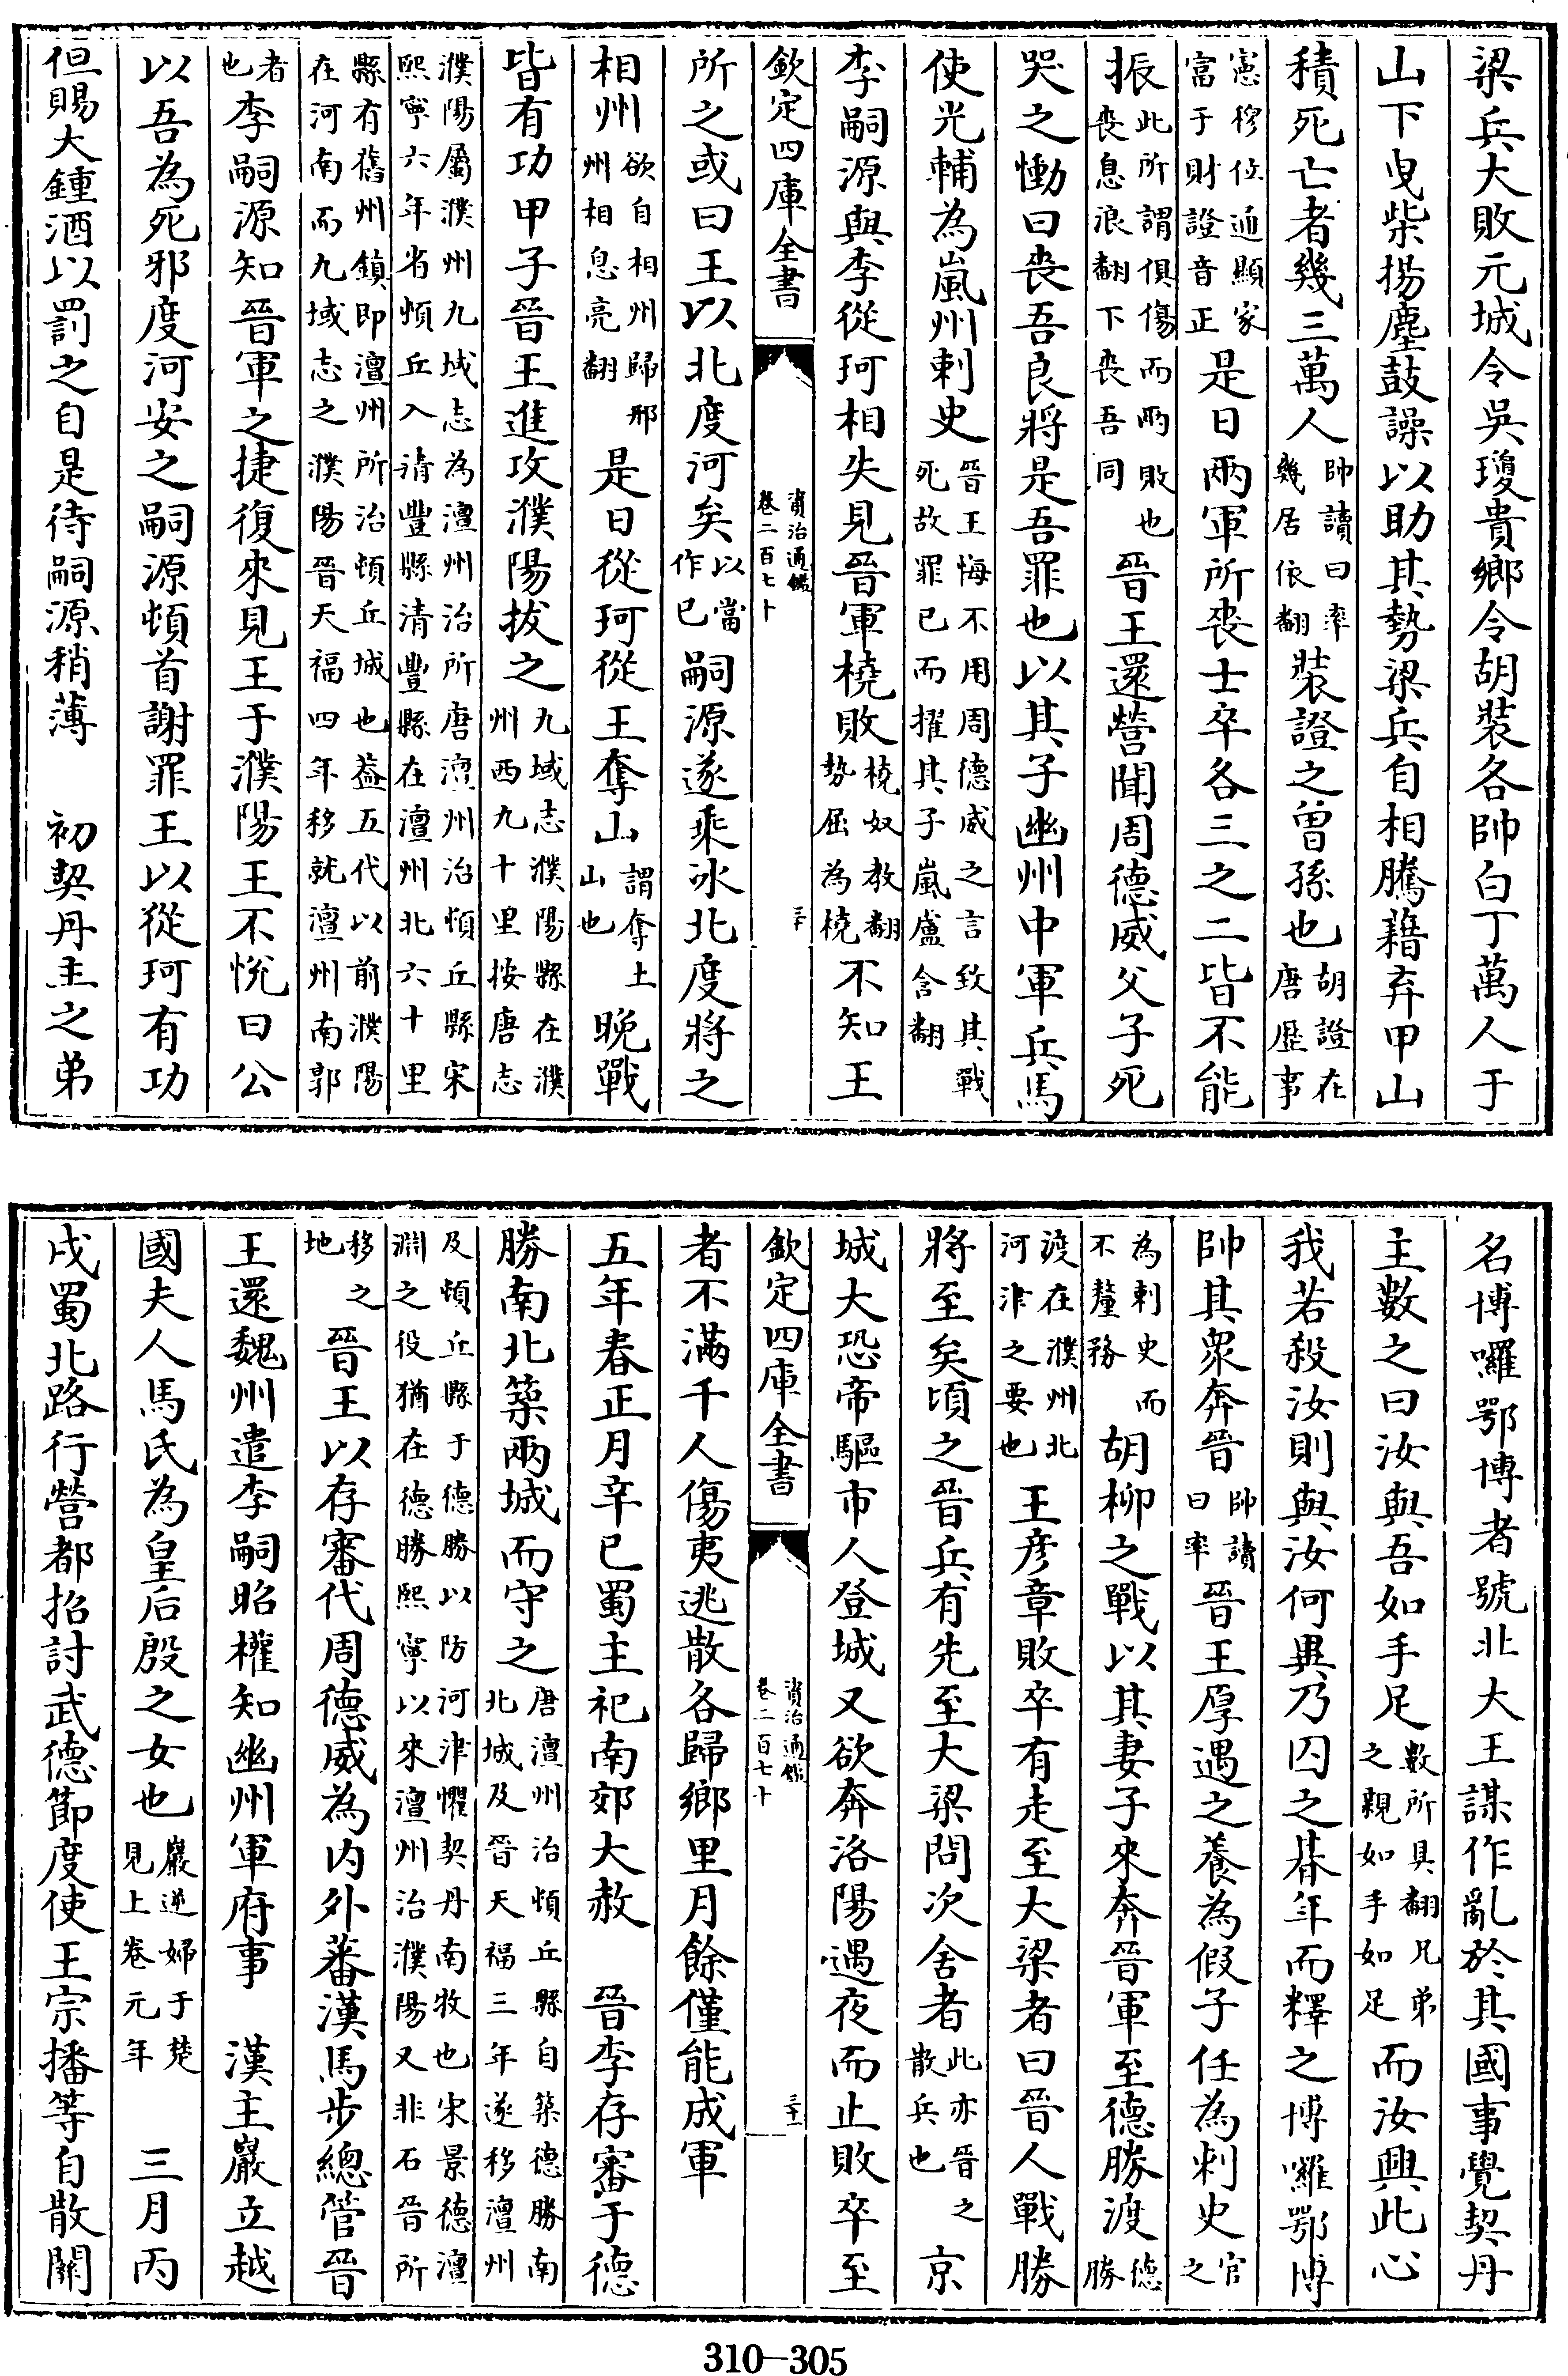 梁兵大敗元城令吳瓊貴鄉令胡裝各帥白丁萬人于
山下曳柴揚塵鼓譟以助其勢梁兵自相騰藉弃甲山
積死亡者幾三萬人帥讀曰率幾居依翻裝證之曾孫也胡證在唐歷事
憲穆位通顯家富于財證音正是日兩軍所喪士卒各三之二皆不能
振此所謂俱傷而兩敗也喪息浪翻下喪吾同晉王還營聞周德威父子死
哭之慟曰喪吾良將是吾罪也以其子幽州中軍兵馬
使光輔為嵐州刺史晉王悔不用周德威之言致其戰死故罪已而擢其子嵐盧含翻
李嗣源與李從珂相失見晉軍橈敗橈奴教翻勢屈為橈不知王
欽定四庫全書
資治通鑑
卷二百七十
三十
所之或曰王以北度河矣以當作已嗣源遂乘冰北度將之
相州欲自相州歸邢州相息亮翻是日從珂從王奪山謂奪土山也晚戰
皆有功甲子晉王進攻濮陽拔之九域志濮陽縣在濮州西九十里按唐志
濮陽屬濮州九域志為澶州治所唐澶州治頓丘縣宋熙寧六年省頓丘入清豐縣清豐縣在澶州北六十里
縣有舊州鎮即澶州所治頓丘城也葢五代以前濮陽在河南而九域志之濮陽晉天福四年移就澶州南郭
者也李嗣源知晉軍之捷復來見王于濮陽王不悅曰公
以吾為死邪度河安之嗣源頓首謝罪王以從珂有功
但賜大鍾酒以罰之自是待嗣源稍薄　初契丹主之弟
名博囉鄂博者號北大王謀作亂於其國事覺契丹
主數之曰汝與吾如手足數所具翻兄弟之親如手如足而汝興此心
我若殺汝則與汝何異乃囚之朞年而釋之博囉鄂博
帥其衆奔晉帥讀曰率晉王厚遇之養為假子任為刺史官之
為刺史而不釐務胡柳之戰以其妻子來奔晉軍至德勝渡德勝
渡在濮州北河津之要也王彦章敗卒有走至大梁者曰晉人戰勝
將至矣頃之晉兵有先至大梁問次舍者此亦晉之散兵也京
城大恐帝驅市人登城又欲奔洛陽遇夜而止敗卒至
欽定四庫全書
資治通鑑
卷二百七十
三十一
者不滿千人傷夷逃散各歸鄉里月餘僅能成軍
五年春正月辛巳蜀主祀南郊大赦　晉李存審于德
勝南北築兩城而守之唐澶州治頓丘縣自築德勝南北城及晉天福三年遂移澶州
及頓丘縣于德勝以防河津懼契丹南牧也宋景德澶淵之役猶在德勝熙寧以來澶州治濮陽又非石晉所
移之地晉王以存審代周德威為内外蕃漢馬步總管晉
王還魏州遣李嗣昭權知幽州軍府事　漢主巖立越
國夫人馬氏為皇后殷之女也巖逆婦于楚見上卷元年　三月丙
戌蜀北路行營都招討武德節度使王宗播等自散關
310—305